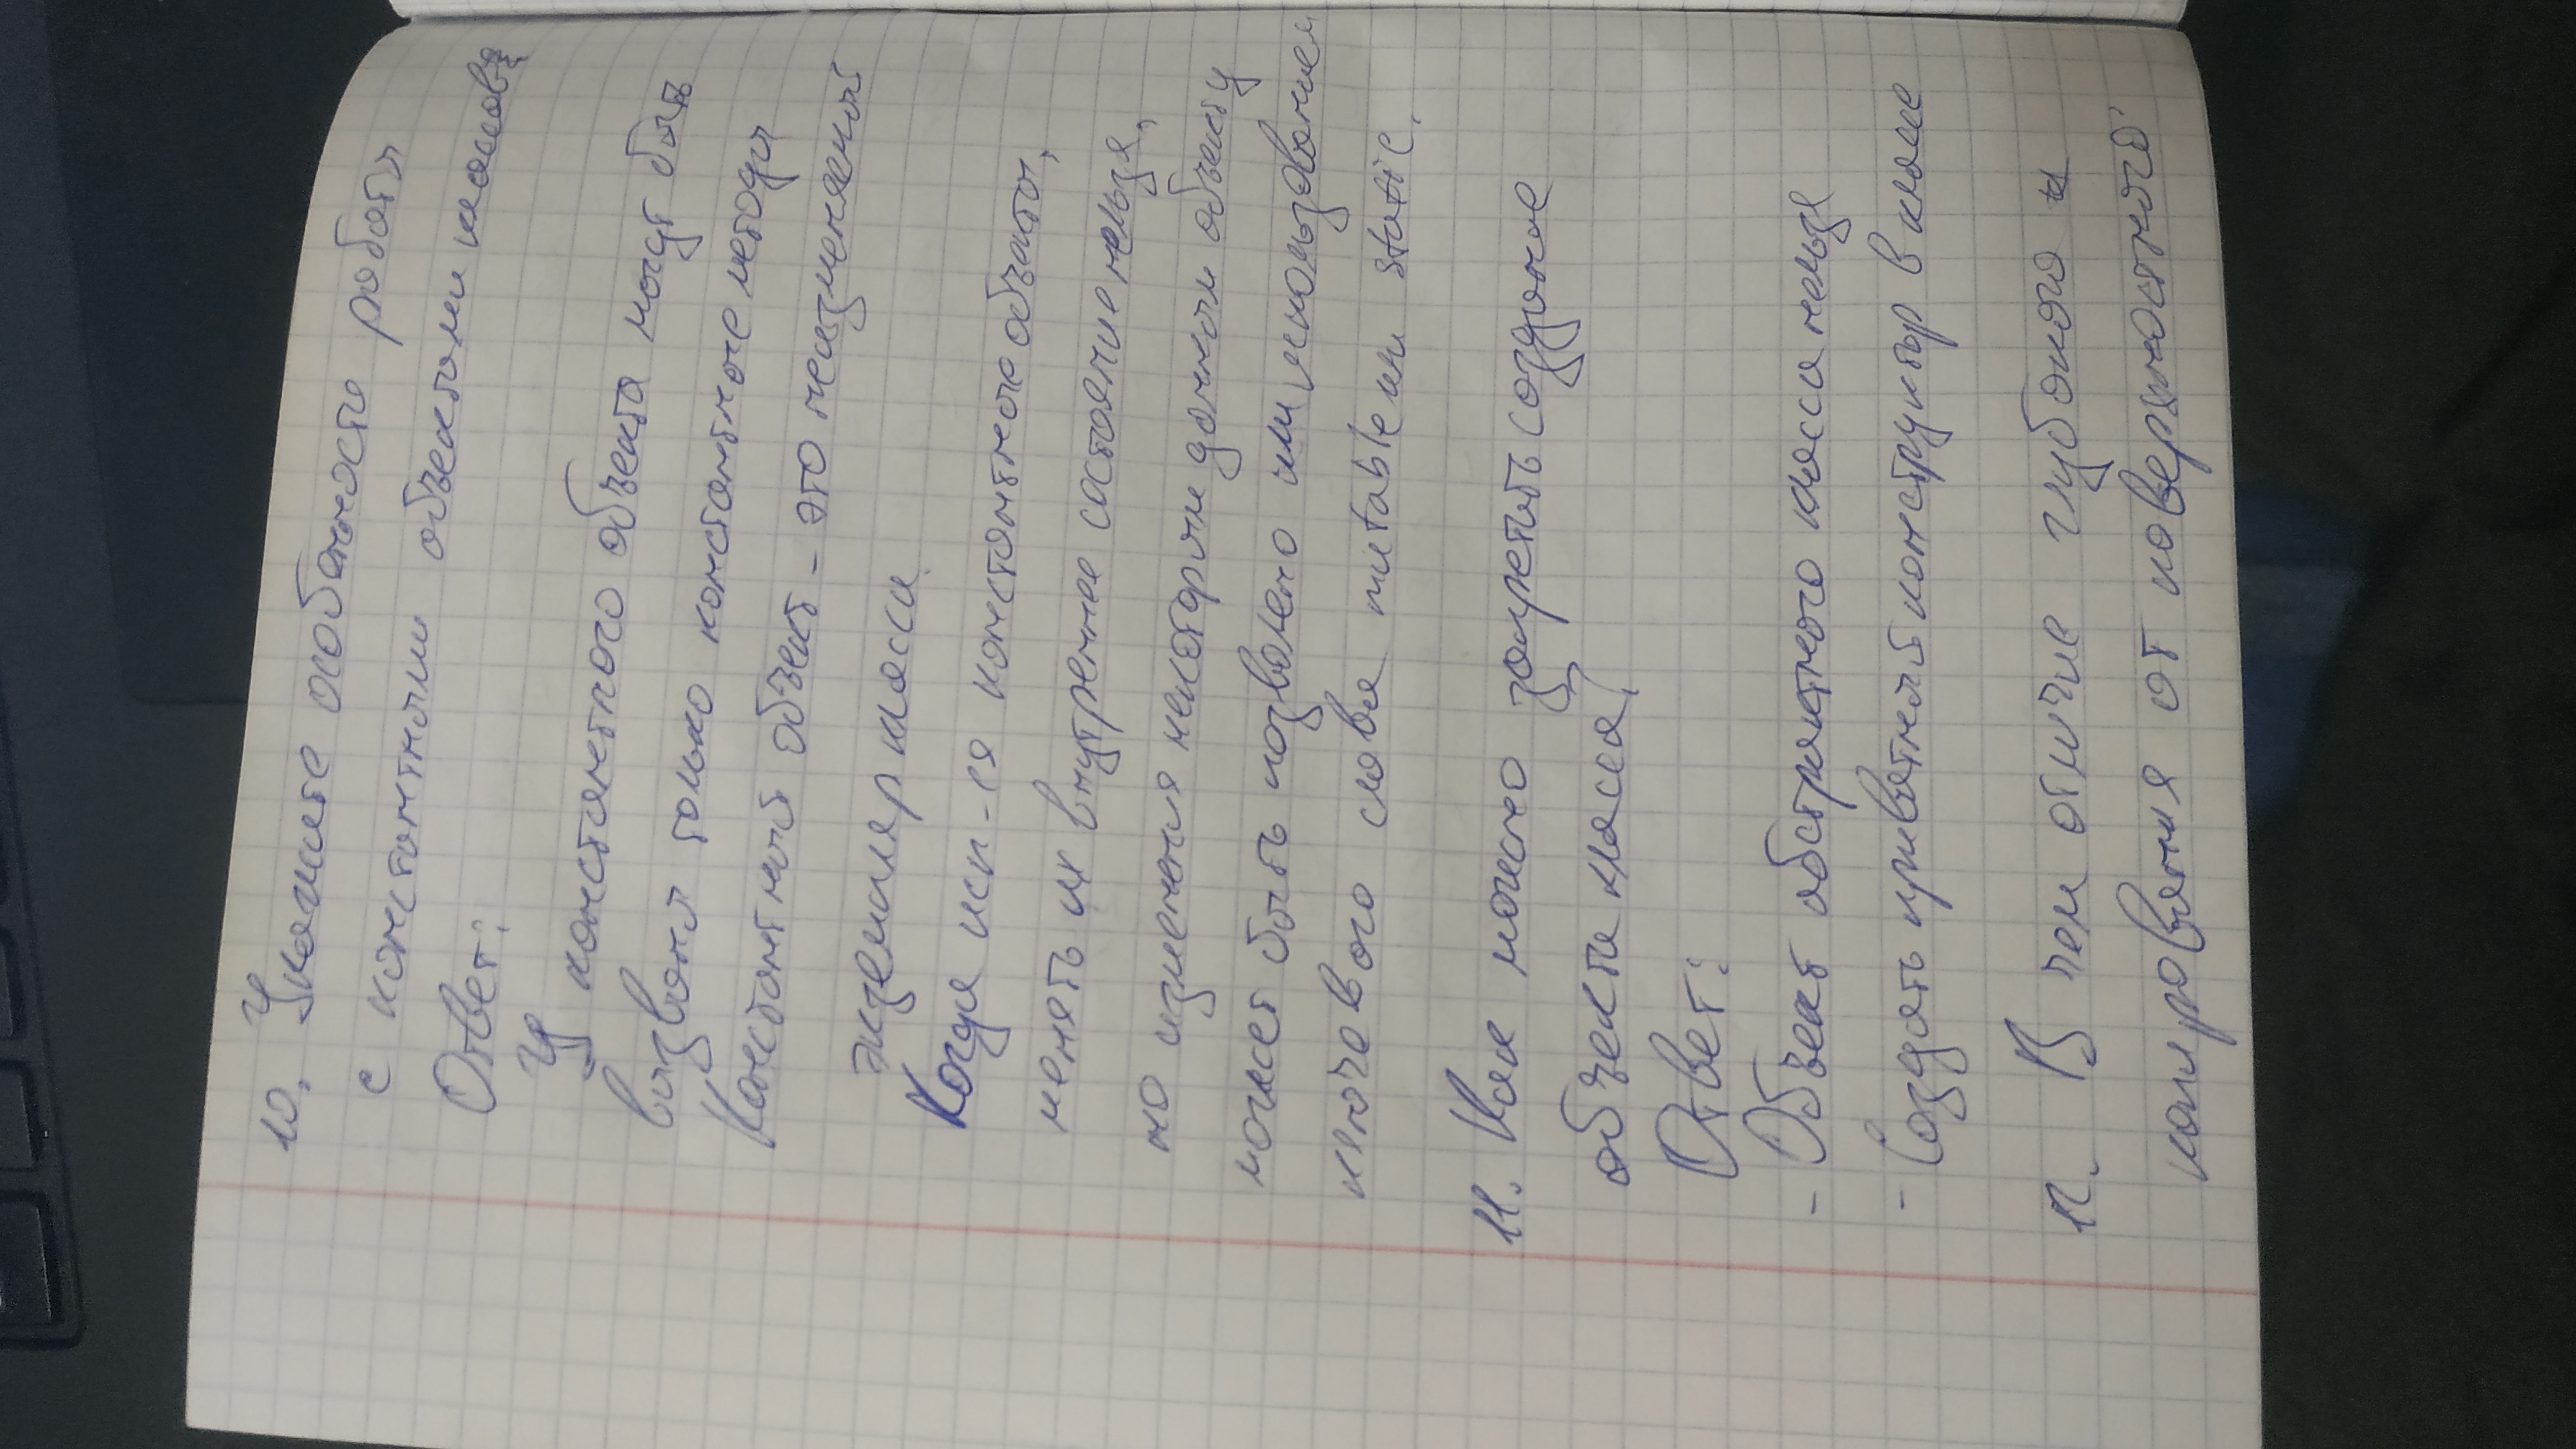 10. Укажите особенности работы
с константными объектами классов.
Ответ:
У константного объекта могут быть
вызваны только константные методы
Константный объект - это неизменяемый
экземпляр класса.
Когда исп-ся константные объекты,
менять их внутреннее состояние нельзя,
но изменения некоторым данным объекту
может быть позволено или использованием
ключевого слова mutable или static.
11. Как можно запретить создание
объекта класса?
Ответ:
- Объект абстрактного класса нельзя
- Создать приватный конструктор в классе
12. В чем отличие глубокого
копирования от поверхностного